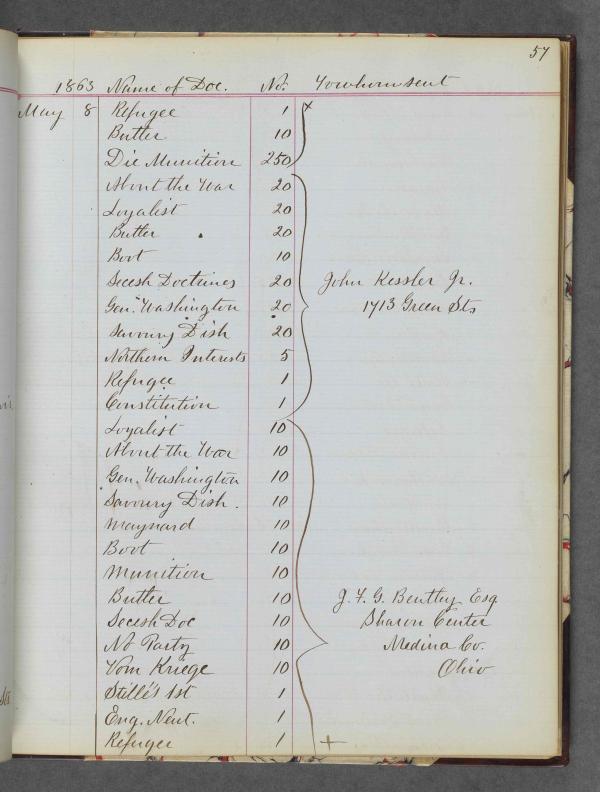 57
1863 Name of Doc. No. To whom sent
May 8 Refugee 1
Butler 10
Die Munition 250
About the War 20
Loyalist 20
Butler 20
Boot 10
Secesh Doctrines 20 John Kessler Jr.
Gen. Washington 20 1713 Green Sts
Savoury Dish 20
Northern Interests 5
Refugee 1
Constitution 1
Loyalist 10
About the War 10
Gen. Washington 10
Savoury Dish. 10
Maynard 10
Boot 10
Munition 10
Butler 10 J. F. G. Bentley Esq
Secesh Doc 10 Sharon Center
No Party 10 Medina Co.
Vom Kriege 10 Ohio
Stillé's 1st 1
Eng. Neut. 1
Refugee 1 +